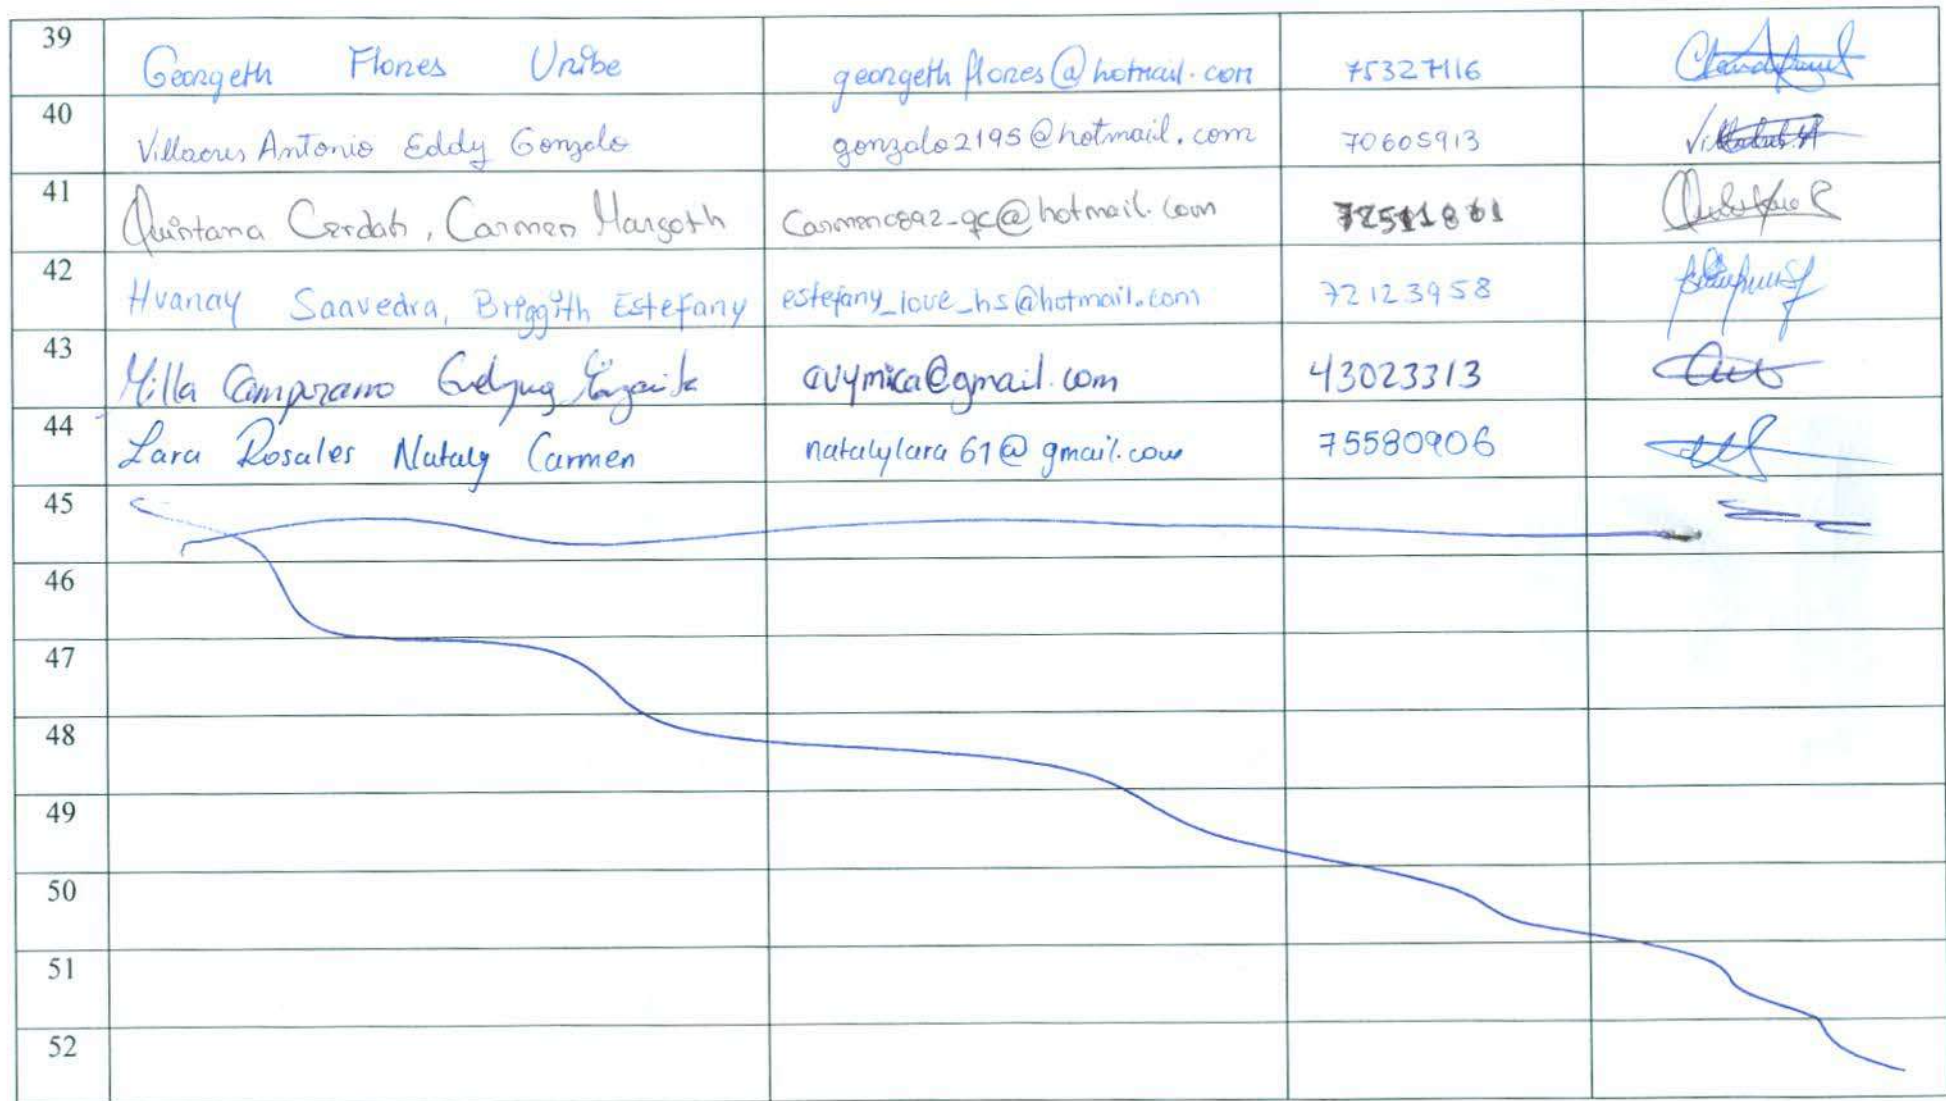 39 Georgeth Flores Uribe georgethflores@hotmail.com 75327116
40 Villacres Antonio Eddy Gonzalo gonzalo2195@hotmail.com 70605913
41 Quintana Cerdah, Carmen Margoth Carmenc892-qc@hotmail.com
42 Huanay Saavedra, Briggith Estefany estefany_love_hs@hotmail.com 72123958
43 Milla 43023313
44 Lara Rosales Nataly Carmen natalylara61@gmail.com 75580906
45
46
47
48
49
50
51
52